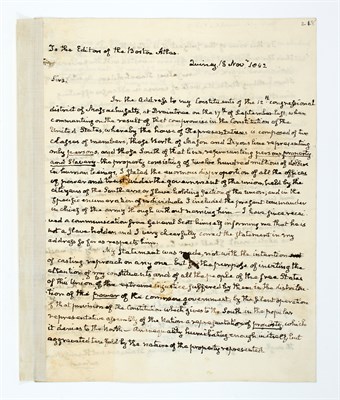 To the Editor of the Boston Atlas.
Quincy 18 Nov.
Sir.
In the Address to my Constituents of the 12th Congressional
district of Massachusetts at Braintree on the 17th of September last, when
commenting on the result of that compromise in the Constitution of the
United States, whereby the house of Representatives is composed of two
classes of members, those North of Mason and Dixon's line representing
only persons, and those South of that line representing persons, property
and Slavery. The property consisting of twelve hundred millions of dollars
in human beings, I stated the enormous disproportion of all the offices
of power and trust under the government of the union held by the
citizens of the South and slave holding section of the union, and in the
specific enumeration of individuals I included the present commander
in chief of the army though without naming him — I have since recei-
ved a communication from General Scott himself informing me that he is
not a slave holder, and I very cheerfully correct the statement in my
address so far as respects him.
My Statement was made, not with the intention
of casting reproach on any one, but for the purpose of exciting the
attention of my constituents and of all the people of the free States
of the Union, of the extreme injustice suffered by them in the distribu-
tion of the power of the common government, by the silent operation
of that provision of the Constitution which gives to the South in the popular
representative assembly of the Nation a representation of property, which
it denies to the North — An inequality humiliating enough in itself, but
aggravated ten fold by the nature of the property represented